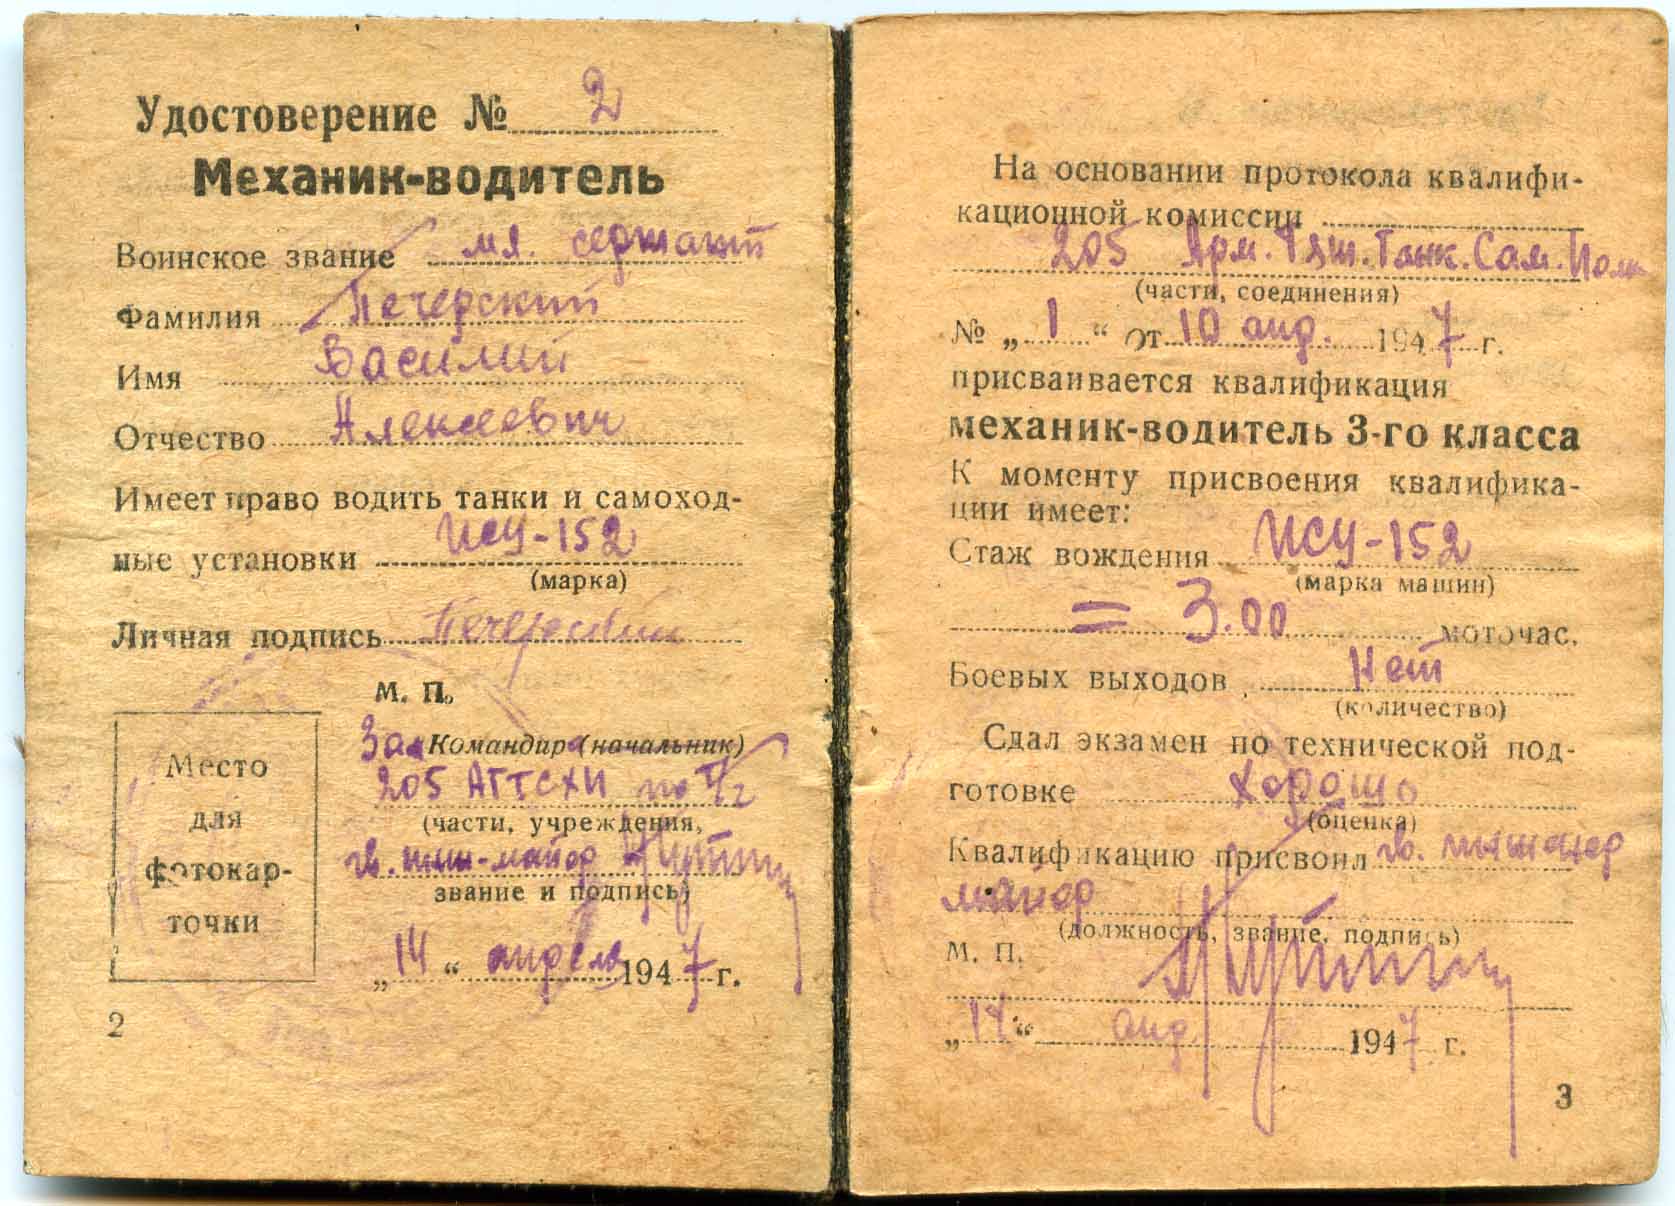 Удостоверение № 2
Механик-водитель
Воинское звание мл. сержант
Фамилия Печерский
Имя Василий
Отчество Алексеевич
Имеет право водить танки и самоход-
ные установки ИСУ-152
(марка)
Личная подпись Печерский
М. П.
Место
для
фотокар-
точки
Зам Командира (начальник)
205 АГТСХП по т/ч
(части, учреждения,
гв. инж-майор
звание и подпись)
„14“ апреля 1947 г.
2
На основании протокола квалифи-
кационной комиссии
205 Арм. Тяж. Танк. Сам. Полк
(части, соединения)
№ „1“ от 10 апр. 1947 г.
присваивается квалификация
механик-водитель 3-го класса
К моменту присвоения квалифика-
ции имеет:
Стаж вождения ИСУ-152
(марка машин)
= 3.00 моточас.
Боевых выходов Нет
(количество)
Сдал экзамен по технической под-
готовке хорошо
(оценка)
Квалификацию присвоил гв. инженер
майор
(должность, звание, подпись)
М. П.
„14“ апр. 1947 г.
3